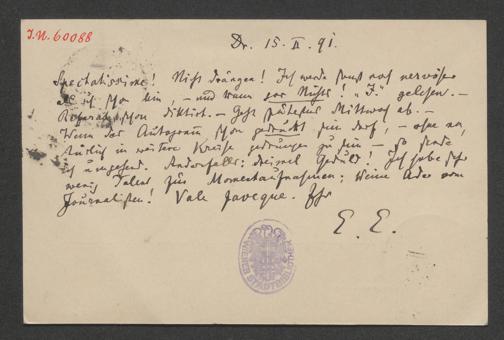 I.N. 60088
Dr. 15. II. 91.
Spectatissime! Nicht drängen! Ich werde sonst noch nervöser
als ich schon bin, – und dann gar Nichts! "F." gelesen. –
Referat schon diktirt. – Geht spätestens Mittwoch ab. –
Wenn das Autogramm schon gedruckt sein darf, – ohne na-
türlich in weitere Kreise gedrungen zu sein – so sende
ich umgehend. Andernfalls: dreimal Geduld! Ich habe sehr
wenig Talent für Momentaufnahmen: keine Ader vom
Journalisten! Vale faveque. Ihr
E. E.
WIENER STADTBIBLIOTHEK